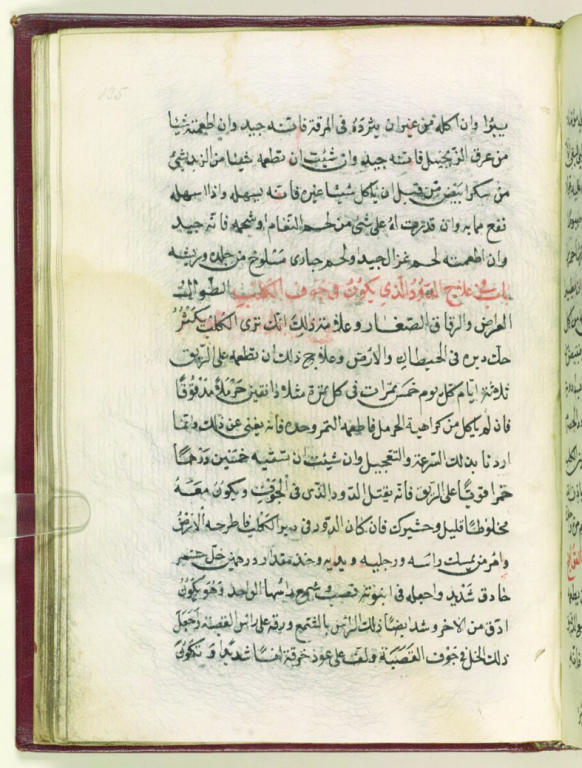 135
يبرا وان اكله من غير ان يثرده فى المرقة فانه جيد وان اطعمته شيا
من عرق الزنجبيل فانه جيد وان شئت ان تطعمه شيئا من الزبد شئ
من سكر ابيض من قبل ان ياكل شيئا غيره فانه يسهله واذا اسهله
نفع مما به وان قدرت له على شئ من لحم النعام او شحمه فانه جيد
وان اطعمته لحم غزال جيد ولحم حبارى مسلوخ من جلده وريشه
باب فى علاج الدود الذى يكون فى جوف الكلب الطوال
العراض والرقاق الصغار وعلامة ذلك انك ترى الكلب يكثر
حك دبره فى الحيطان والارض وعلاج ذلك ان تطعمه على الريق
ثلاثة ايام كل يوم خمس تمرات فى كل تمرة مثلا دانقين حرملا مدقوقا
فان لم ياكل من كراهية الحرمل فاطعمه التمر وحده فانه يغنى عن ذلك وانما
اردنا بذلك السرعة والتعجيل وان شئت ان تسقيه خمسين درهما
خمرا قويا على الريق فانه يقتل الدود الذى فى الجوف ويكون معه
مخلوطا قليل وحشيرك فان كان الدود فى دبر الكلب فاطرحه الارض
وامر من يمسك راسه ورجليه ويديه وخذ مقدار درهمين خل خمر
حاذق شديد واجعله فى انبوبة قصب وشمع راسها الواحد وهو يكون
ادق من الاخر وشد ايضا ذلك الراس بالشمع ورقه على راس القصبة واجعل
ذلك الخل فى جوف القصبة ولف على عود خرقة لفا شديدا وتكون